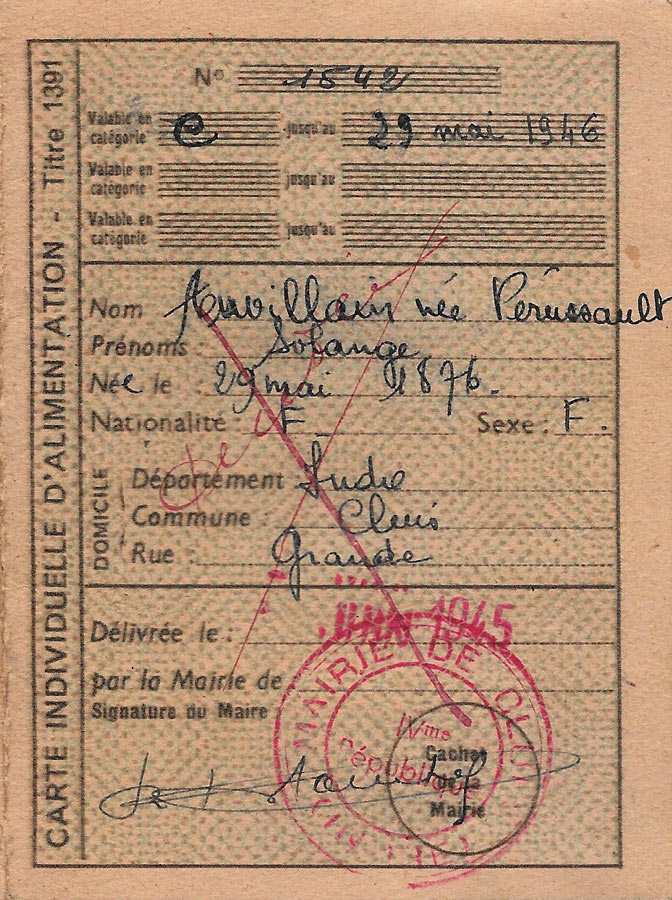 CARTE INDIVIDUELLE D'ALIMENTATION - Titre 1391
N° 1542
Valable en catégorie C jusqu'au 29 mai 1946
Valable en catégorie jusqu'au
Valable en catégorie jusqu'au
Nom née Pérussault
Prénoms : Solange
Née le : 29 mai 1876.
Nationalité : F Sexe : F.
DOMICILE
Département Indre
Commune : Cluis
Rue : Grande
Délivrée le : JUIN 1945
par la Mairie de
Signature du Maire
MAIRIE DE
IVme
République
Cachet
de la
Mairie